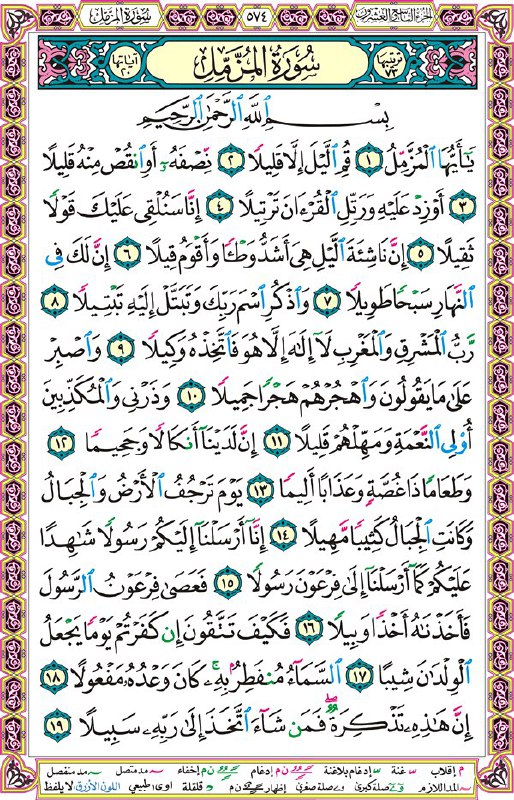 سورة المزمل ٥٧٤ الجزء التاسع والعشرون
ترتيبها ٧٣ سُورَةُ المُزَّمِّل آياتها ٢٠
بِسْمِ اللَّهِ الرَّحْمَٰنِ الرَّحِيمِ
يَا أَيُّهَا الْمُزَّمِّلُ ١ قُمِ الَّيْلَ إِلَّا قَلِيلًا ٢ نِّصْفَهُ أَوِ انقُصْ مِنْهُ قَلِيلًا
٣ أَوْ زِدْ عَلَيْهِ وَرَتِّلِ الْقُرْءَانَ تَرْتِيلًا ٤ إِنَّا سَنُلْقِي عَلَيْكَ قَوْلًا
ثَقِيلًا ٥ إِنَّ نَاشِئَةَ الَّيْلِ هِيَ أَشَدُّ وَطْئًا وَأَقْوَمُ قِيلًا ٦ إِنَّ لَكَ فِي
النَّهَارِ سَبْحًا طَوِيلًا ٧ وَاذْكُرِ اسْمَ رَبِّكَ وَتَبَتَّلْ إِلَيْهِ تَبْتِيلًا ٨
رَّبُّ الْمَشْرِقِ وَالْمَغْرِبِ لَا إِلَٰهَ إِلَّا هُوَ فَاتَّخِذْهُ وَكِيلًا ٩ وَاصْبِرْ
عَلَىٰ مَا يَقُولُونَ وَاهْجُرْهُمْ هَجْرًا جَمِيلًا ١٠ وَذَرْنِي وَالْمُكَذِّبِينَ
أُوْلِي النَّعْمَةِ وَمَهِّلْهُمْ قَلِيلًا ١١ إِنَّ لَدَيْنَا أَنكَالًا وَجَحِيمًا ١٢
وَطَعَامًا ذَا غُصَّةٍ وَعَذَابًا أَلِيمًا ١٣ يَوْمَ تَرْجُفُ الْأَرْضُ وَالْجِبَالُ
وَكَانَتِ الْجِبَالُ كَثِيبًا مَّهِيلًا ١٤ إِنَّا أَرْسَلْنَا إِلَيْكُمْ رَسُولًا شَاهِدًا
عَلَيْكُمْ كَمَا أَرْسَلْنَا إِلَىٰ فِرْعَوْنَ رَسُولًا ١٥ فَعَصَىٰ فِرْعَوْنُ الرَّسُولَ
فَأَخَذْنَاهُ أَخْذًا وَبِيلًا ١٦ فَكَيْفَ تَتَّقُونَ إِن كَفَرْتُمْ يَوْمًا يَجْعَلُ
الْوِلْدَانَ شِيبًا ١٧ السَّمَاءُ مُنفَطِرٌ بِهِ كَانَ وَعْدُهُ مَفْعُولًا ١٨
إِنَّ هَٰذِهِ تَذْكِرَةٌ فَمَن شَاءَ اتَّخَذَ إِلَىٰ رَبِّهِ سَبِيلًا ١٩
م إقلاب غنة إدغام بلاغنة ن م إدغام ن م إخفاء مد متصل مد منفصل
المد اللازم صلة كبرى صلة صغرى إظهار ن م قلقلة اوى: طبيعي اللون الأزرق لا يلفظ